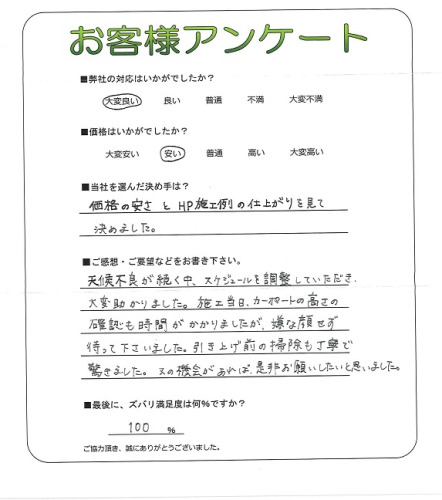 お客様アンケート
■弊社の対応はいかがでしたか？
大変良い 良い 普通 不満 大変不満
■価格はいかがでしたか？
大変安い 安い 普通 高い 大変高い
■当社を選んだ決め手は？
価格の安さ と HP施工例の仕上がりを見て
決めました。
■ご感想・ご要望などをお書き下さい。
天候不良が続く中、スケジュールを調整していただき、
大変助かりました。施工当日、カーポートの高さの
確認も時間がかかりましたが、嫌な顔せず
待って下さいました。引き上げ前の掃除も丁寧で
驚きました。又の機会があれば、是非お願いしたいと思いました。
■最後に、ズバリ満足度は何%ですか？
100 %
ご協力頂き、誠にありがとうございました。